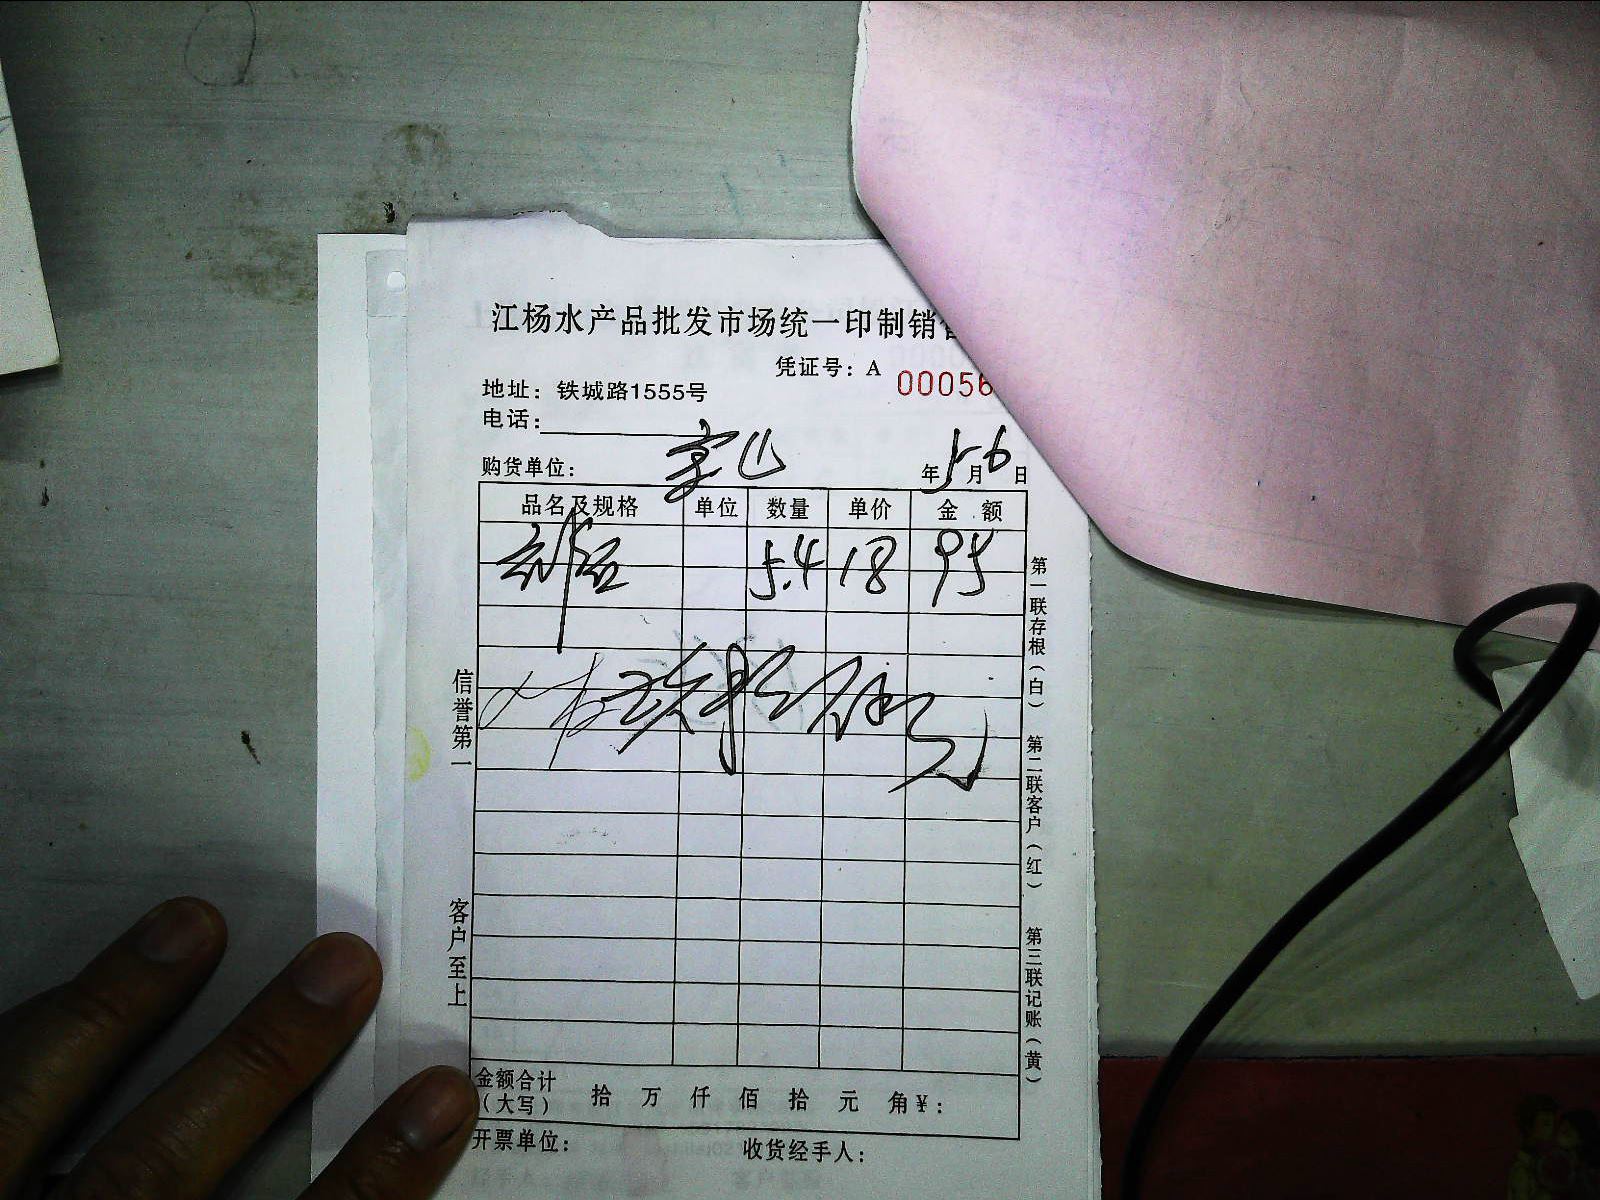 江杨水产品批发市场统一印制销售
凭证号：A 00056
地址：铁城路1555号
电话：
购货单位： 宝山 年 5 月 6 日
品名及规格 单位 数量 单价 金 额
5.4 18 95
第一联存根（白） 第二联客户（红） 第三联记账（黄）
信誉第一
客户至上
金额合计（大写） 拾 万 仟 佰 拾 元 角 ¥：
开票单位： 收货经手人：